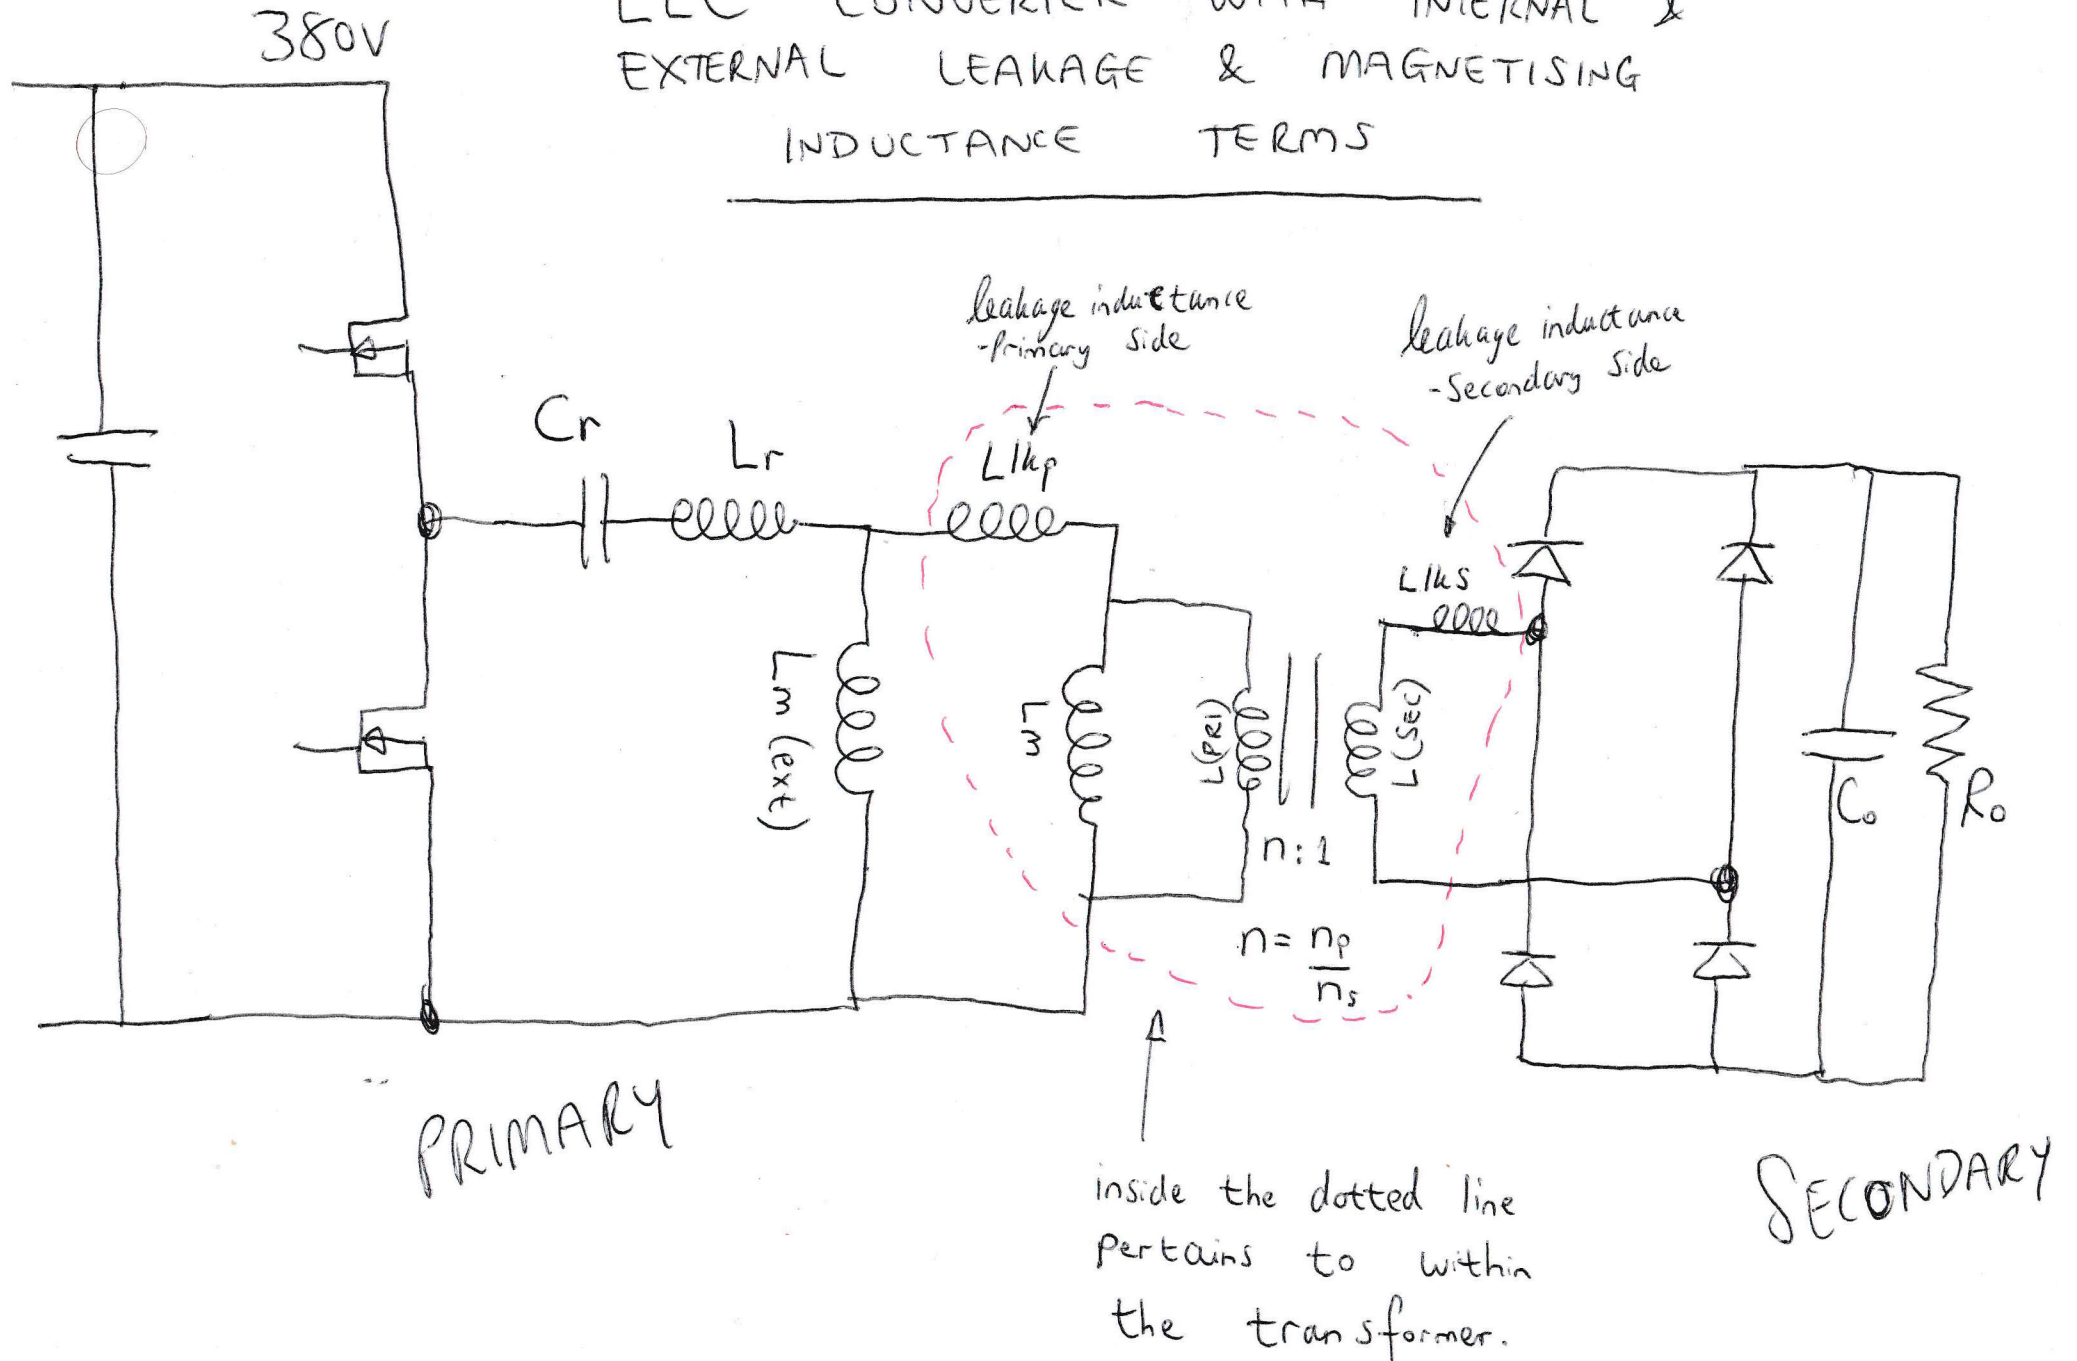 LLC CONVERTER WITH INTERNAL &
EXTERNAL LEAKAGE & MAGNETISING
INDUCTANCE TERMS
380V
leakage inductance
-Primary Side
leakage inductance
-Secondary Side
Cr
Lr
Llkp
Llks
Lm (ext)
Lm
L(PRI)
L(SEC)
n:1
n = np
ns
Co
Ro
PRIMARY
SECONDARY
inside the dotted line
pertains to within
the transformer.